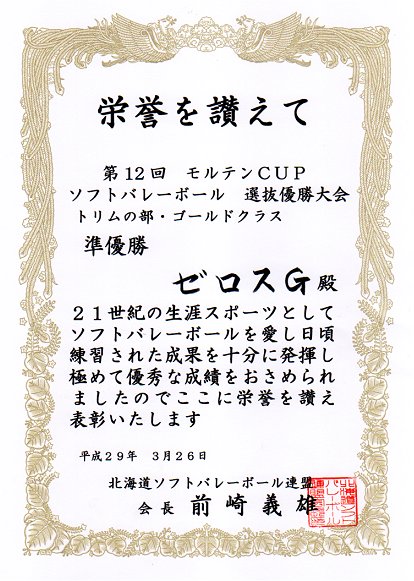 栄誉を讃えて
第12回 モルテンCUP
ソフトバレーボール 選抜優勝大会
トリムの部・ゴールドクラス
準優勝
ゼロスG殿
21世紀の生涯スポーツとして
ソフトバレーボールを愛し日頃
練習された成果を十分に発揮し
極めて優秀な成績をおさめられ
ましたのでここに栄誉を讃え
表彰いたします
平成29年 3月26日
北海道ソフトバレーボール連盟
会長 前崎義雄